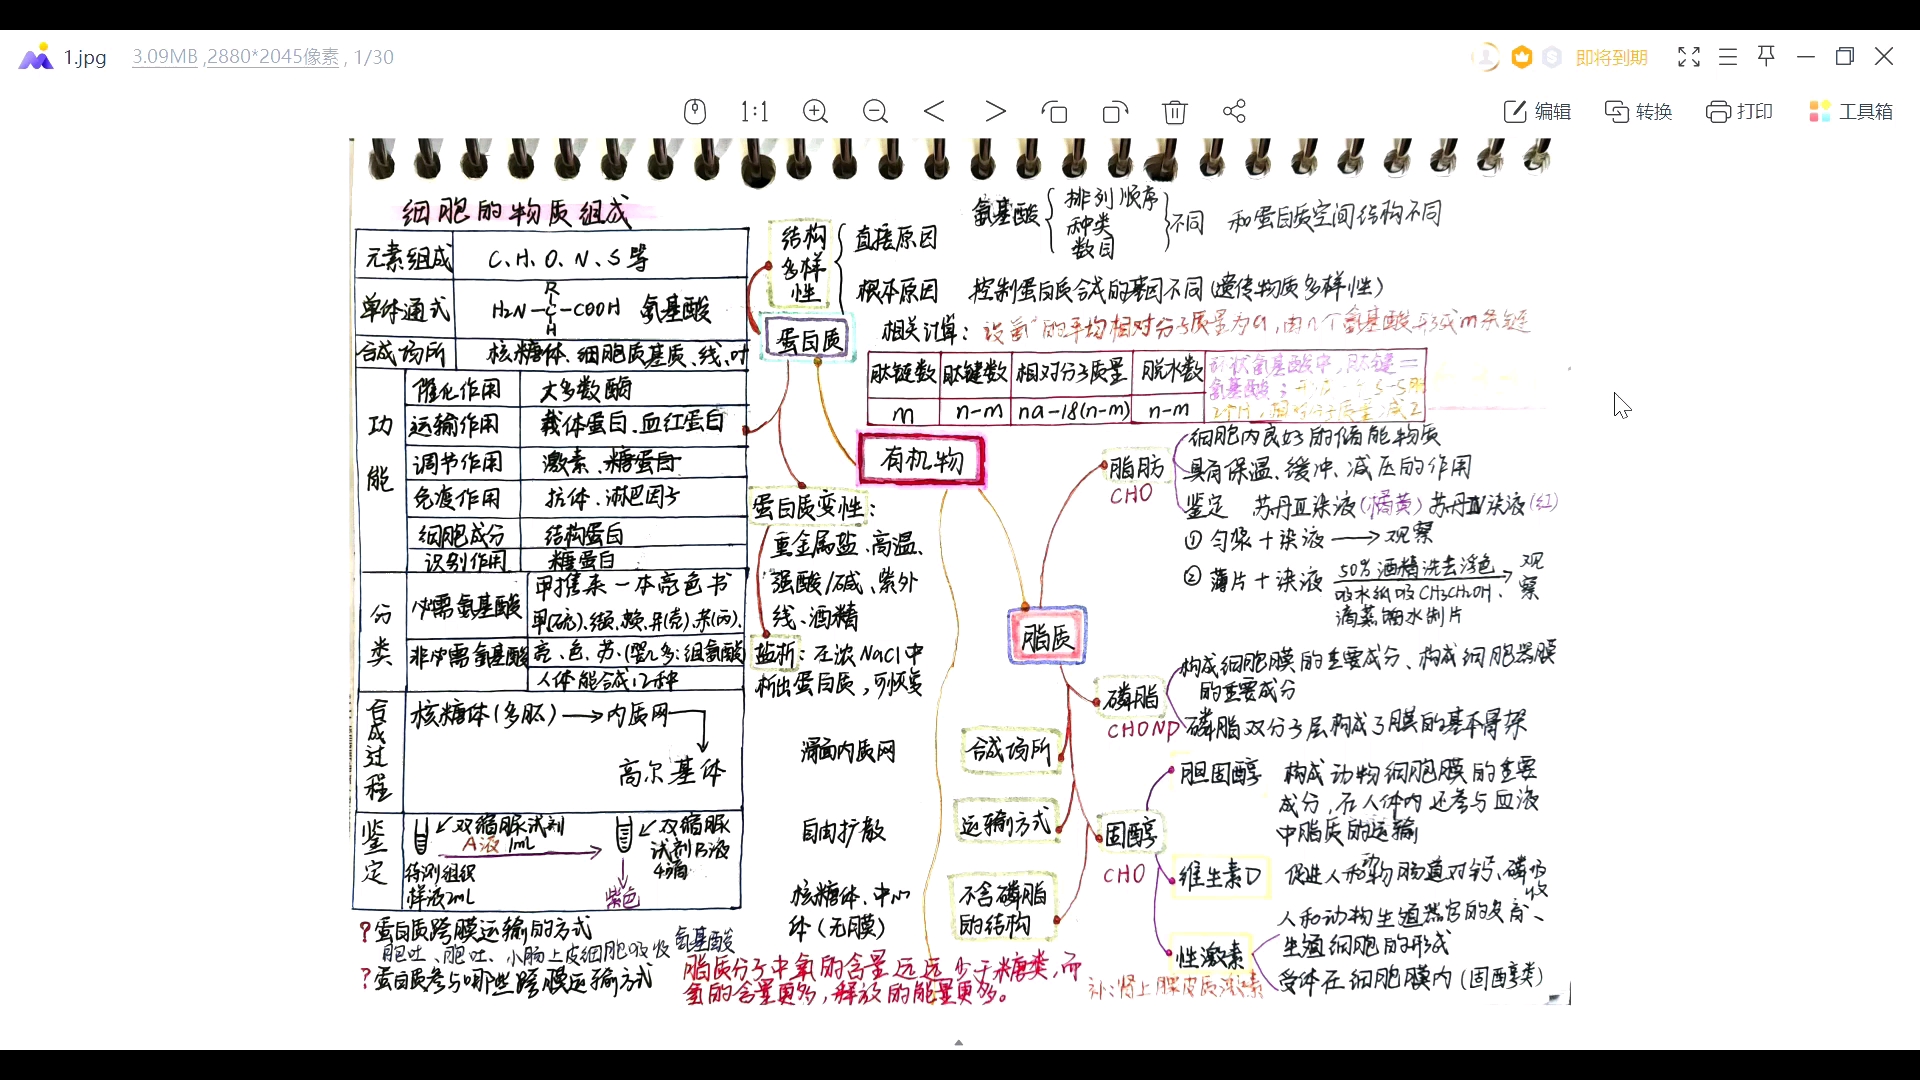 1.jpg
3.09MB ,2880*2045像素 , 1/30
即将到期
1:1
编辑
转换
打印
工具箱
细胞的物质组成
元素组成 C、H、O、N、S等
单体通式 H₂N—C—COOH 氨基酸
R
H
合成场所 核糖体、细胞质基质、线、叶
功能
催化作用 大多数酶
运输作用 载体蛋白、血红蛋白
调节作用 激素、糖蛋白
免疫作用 抗体、淋巴因子
细胞成分 结构蛋白
识别作用 糖蛋白
分类
必需氨基酸 甲携来一本亮色书
甲(硫)、缬、赖、异(亮)、苯(丙)、
非必需氨基酸 亮、色、苏、(婴儿多：组氨酸)
人体能合成12种
合成过程
核糖体(多肽)→内质网
高尔基体
鉴定
双缩脲试剂
A液 1mL
待测组织
样液2mL
双缩脲
试剂B液
4滴
紫色
?蛋白质跨膜运输的方式
胞吐、胞吐、小肠上皮细胞吸收氨基酸
?蛋白质参与哪些跨膜运输方式
结构
多样
性
直接原因
氨基酸
排列顺序
种类
数目
不同 和蛋白质空间结构不同
根本原因 控制蛋白质合成的基因不同(遗传物质多样性)
蛋白质
相关计算：设氨 的平均相对分子质量为a，由n个氨基酸形成m条链
肽链数 肽键数 相对分子质量 脱水数
m n-m na-18(n-m) n-m
环状氨基酸中，肽键=
氨基酸；
2个H，相对分子质量减2
有机物
蛋白质变性：
重金属盐、高温、
强酸/碱、紫外
线、酒精
盐析：在浓NaCl中
析出蛋白质，可恢复
脂肪
CHO
细胞内良好的储能物质
具有保温、缓冲、减压的作用
鉴定 苏丹Ⅲ染液(橘黄) 苏丹Ⅳ染液(红)
① 匀浆+染液→观察
② 薄片+染液 50%酒精洗去浮色 观察
吸水纸吸CH₃CH₂OH、
滴蒸馏水制片
脂质
磷脂
CHONP
构成细胞膜的重要成分、构成细胞器膜
的重要成分
磷脂双分子层构成了膜的基本骨架
滑面内质网 合成场所
自由扩散 运输方式
核糖体、中心
体(无膜)
不含磷脂
的结构
固醇
CHO
胆固醇 构成动物细胞膜的重要
成分，在人体内还参与血液
中脂质的运输
维生素D 促进人和动物肠道对钙、磷吸收
性激素
人和动物生殖器官的发育、
生殖细胞的形成
受体在细胞膜内(固醇类)
补：肾上腺皮质激素
脂质分子中氧的含量远远少于糖类，而
氢的含量更多，释放的能量更多。